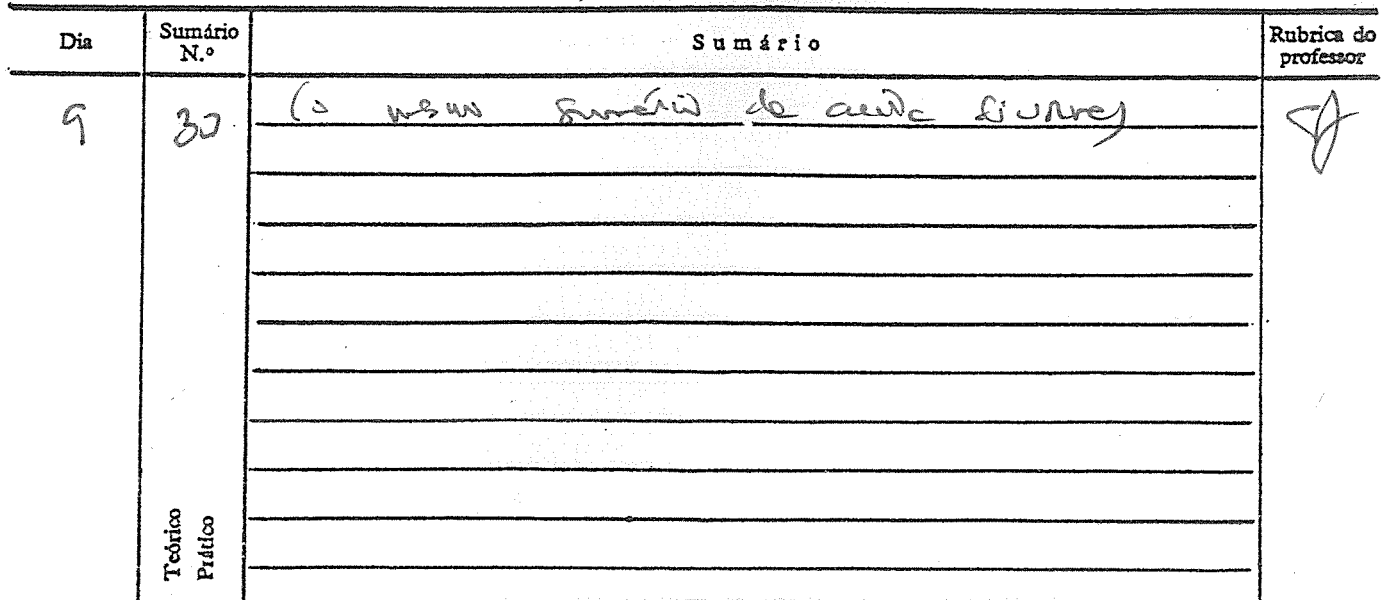 Dia Sumário N.º Sumário Rubrica do professor
9 30 (o mesmo sumário da aula
Teórico
Prático